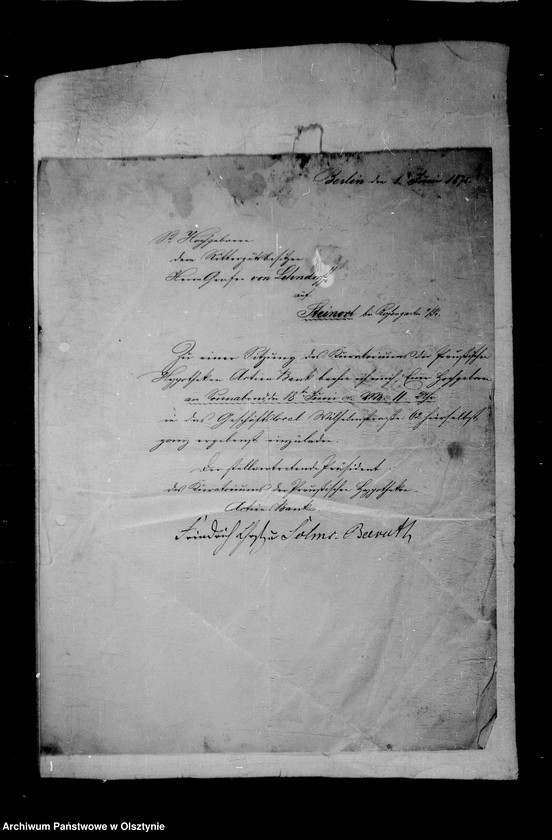 Berlin den 1. Juni 187
Sr. Hochgeboren
dem Rittergutsbesitzer
Herrn Grafen von Lehndorff
auf
Steinort bei
Zu einer Sitzung des Curatoriums der Preußischen
Hypotheken Actien Bank beehre ich mich, Euer Hochgeboren
am Sonnabend den 18ten Juni c. 11 Uhr
in das Geschäftslocal Wilhelmstraße 62 hierselbst
ganz ergebenst einzuladen.
Der stellvertretende Präsident
des Curatoriums der Preußischen Hypotheken
Actien Bank
Friedrich zu Solms-Baruth
Archiwum Państwowe w Olsztynie